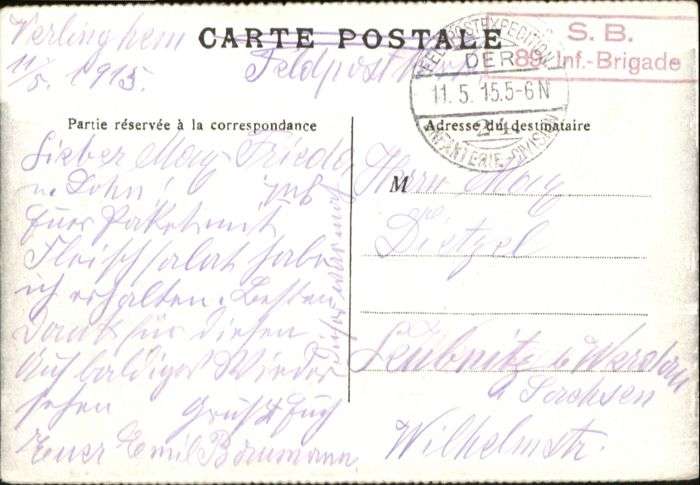 Verlinghem
11/5. 1915.
CARTE POSTALE
Feldpost
S. B.
89. Inf.-Brigade
FELDPOSTEXPEDITION
DER
11.5.15.5-6N
24.
INFANTERIE-DIVISION
Partie réservée à la correspondance
Adresse du destinataire
Lieber Max, Frieda
u. Sohn!
Euer Paket mit
Fleischsalat habe
ich erhalten. Besten
Dank für diesen
Auf baldiges Wieder
sehen Grüßt Euch
Euer Emil Baumann.
M
Herrn Max
Dietzel
Leubnitz b. Werdau
Sachsen
Wilhelmstr.